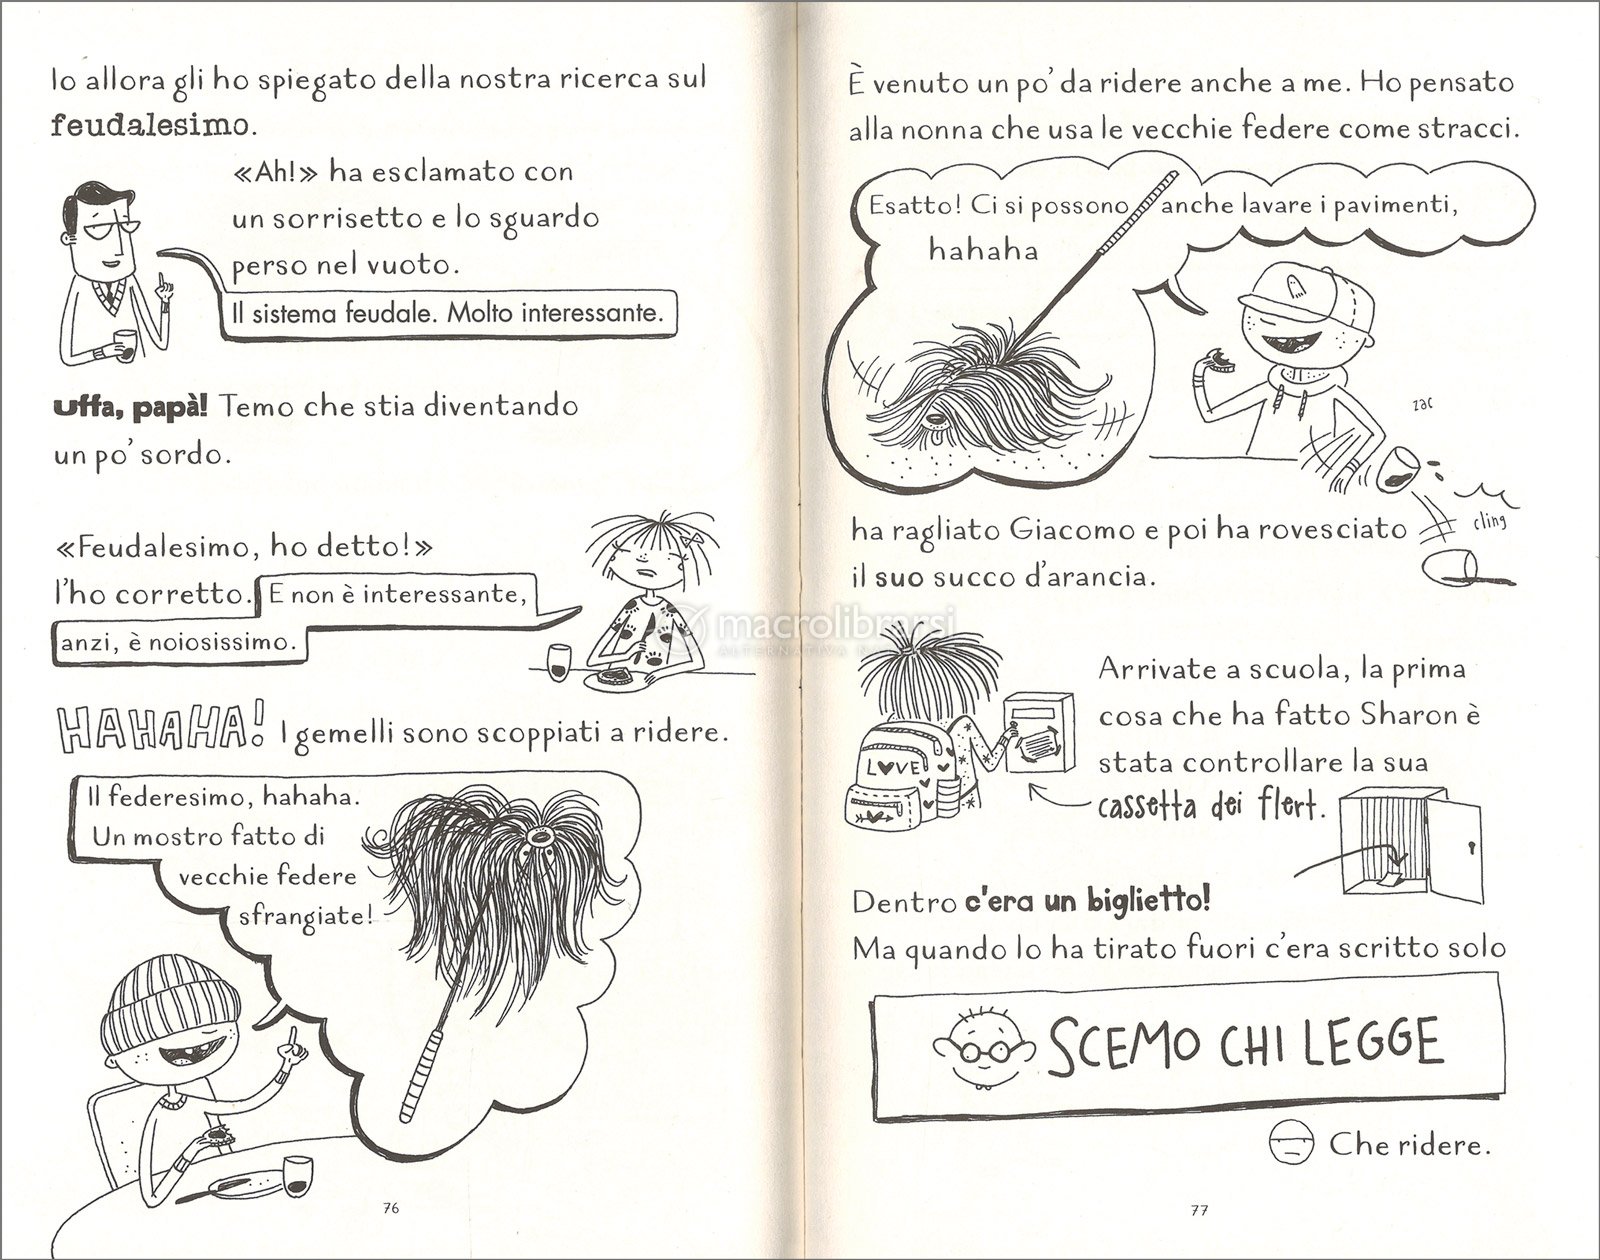 Io allora gli ho spiegato della nostra ricerca sul
feudalesimo.
«Ah!» ha esclamato con
un sorrisetto e lo sguardo
perso nel vuoto.
Il sistema feudale. Molto interessante.
Uffa, papà! Temo che stia diventando
un po' sordo.
«Feudalesimo, ho detto!»
l'ho corretto. E non è interessante,
anzi, è noiosissimo.
HAHAHA! I gemelli sono scoppiati a ridere.
Il federesimo, hahaha.
Un mostro fatto di
vecchie federe
sfrangiate!
76
È venuto un po' da ridere anche a me. Ho pensato
alla nonna che usa le vecchie federe come stracci.
Esatto! Ci si possono anche lavare i pavimenti,
hahaha
zac
cling
ha ragliato Giacomo e poi ha rovesciato
il suo succo d'arancia.
macrolibrarsi
LOVE
Arrivate a scuola, la prima
cosa che ha fatto Sharon è
stata controllare la sua
cassetta dei flert.
Dentro c'era un biglietto!
Ma quando lo ha tirato fuori c'era scritto solo
SCEMO CHI LEGGE
Che ridere.
77